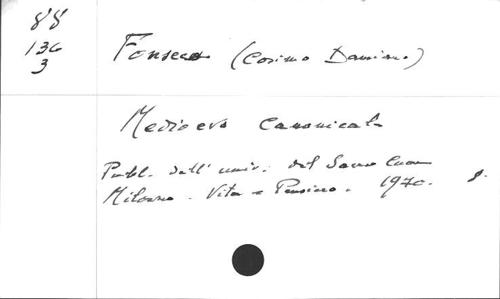 88
136
3
Fonseca (Cosimo Damiano)
Medioevo canonicale
Publ. dell' univ. del Sacro Cuore
Milano. Vita e Pensiero. 1970. 8.